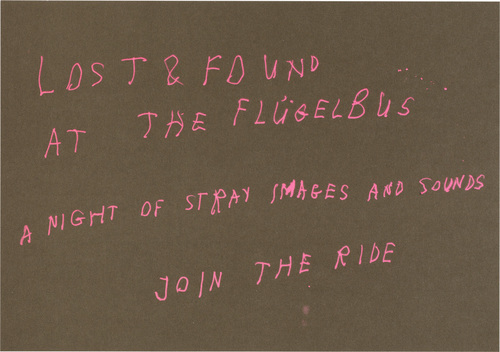 LOST & FOUND
AT THE FLÜGELBUS
A NIGHT OF STRAY IMAGES AND SOUNDS
JOIN THE RIDE